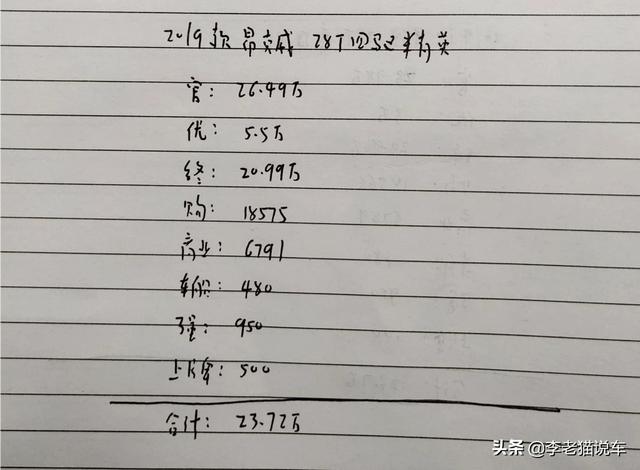 2019款 昂克威 28T四驱精英
官: 26.49万
优: 5.5万
终: 20.99万
购: 18575
商业: 6791
车船: 480
强: 950
上牌: 500
合计: 23.72万
头条 @李老猫说车